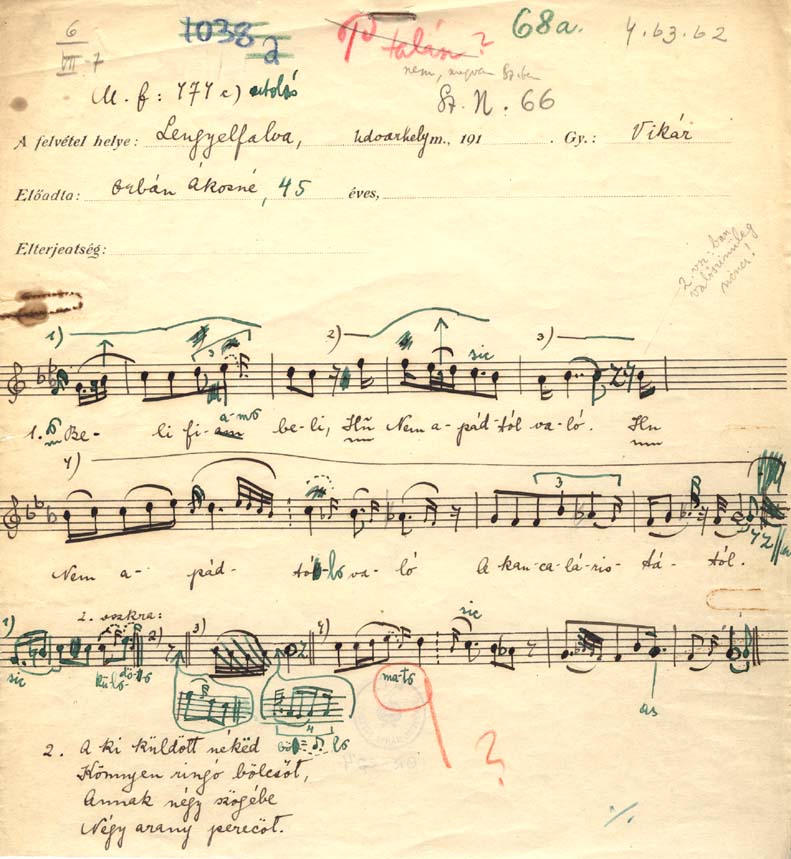 6 1038 talán? 68a. 4.63.62
VII.7 2 nem, megvan Sz-ben
M. f: 771 c) utolsó Sz. N. 66
A felvétel helye: Lengyelfalva, Udvarhely m., 191 . Gy.: Vikár
Előadta: Orbán Ákosné, 45 éves,
Elterjeatség:
2. vsz.-ban valószínűleg nincs!
1) 2) 3)
3 sic
1. Be- li fi- a-mo be-li, Hŭ Nem a-pád-tól va-ló. Hŭ
4)
3
Nem a- pád- tó-lo va- ló A kan-ca-lá-ris- tá- tól.
1) 2. versszakra: 2) 3) 4) sic
sic kü-lö- dö-tö ma-to
4 as
2. A ki küldött nékëd
Könnyen ringó bölcsőt,
Annak négy szögébe
Négy arany perecöt.
?